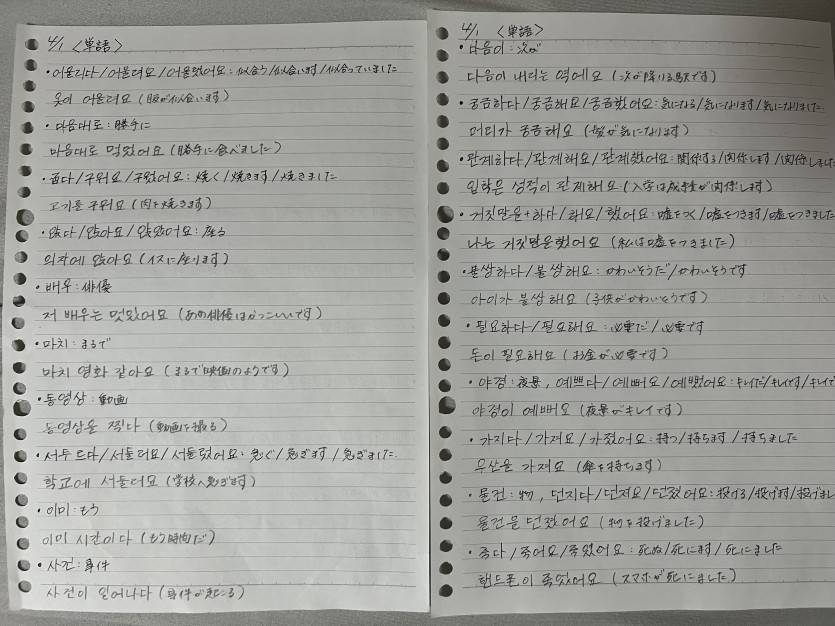 4/1 〈単語〉
・어울리다/어울려요/어울렸어요:似合う/似合います/似合っていました
옷이 어울려요 (服が似合います)
・마음대로:勝手に
마음대로 먹었어요 (勝手に食べました)
・굽다/구워요/구웠어요:焼く/焼きます/焼きました
고기를 구워요 (肉を焼きます)
・앉다/앉아요/앉았어요:座る
의자에 앉아요 (イスに座ります)
・배우:俳優
저 배우는 멋있어요 (あの俳優はかっこいいです)
・마치:まるで
마치 영화 같아요 (まるで映画のようです)
・동영상:動画
동영상을 찍다 (動画を撮る)
・서두르다/서둘러요/서둘렀어요:急ぐ/急ぎます/急ぎました
학교에 서둘러요 (学校へ急ぎます)
・이미:もう
이미 시간이다 (もう時間だ)
・사건:事件
사건이 일어나다 (事件が起こる)
4/1 〈単語〉
・다음이:次が
다음이 내리는 역에요 (次が降りる駅です)
・궁금하다/궁금해요/궁금했어요:気になる/気になります/気になりました
머리가 궁금해요 (髪が気になります)
・관계하다/관계해요/관계했어요:関係する/関係します/関係しました
입학은 성적이 관계해요 (入学は成績が関係します)
・거짓말을+하다/해요/했어요:嘘をつく/嘘をつきます/嘘をつきました
나는 거짓말을했어요 (私は嘘をつきました)
・불쌍하다/불쌍해요:かわいそうだ/かわいそうです
아이가 불쌍해요 (子供がかわいそうです)
・필요하다/필요해요:必要だ/必要です
돈이 필요해요 (お金が必要です)
・야경:夜景, 예쁘다/예뻐요/예뻤어요:キレイだ/キレイです/キレイで
야경이 예뻐요 (夜景がキレイです)
・가지다/가져요/가졌어요:持つ/持ちます/持ちました
우산을 가져요 (傘を持ちます)
・물건:物, 던지다/던져요/던졌어요:投げる/投げます/投げまし
물건을 던졌어요 (物を投げました)
・죽다/죽어요/죽었어요:死ぬ/死にます/死にました
핸드폰이 죽었어요 (スマホが死にました)